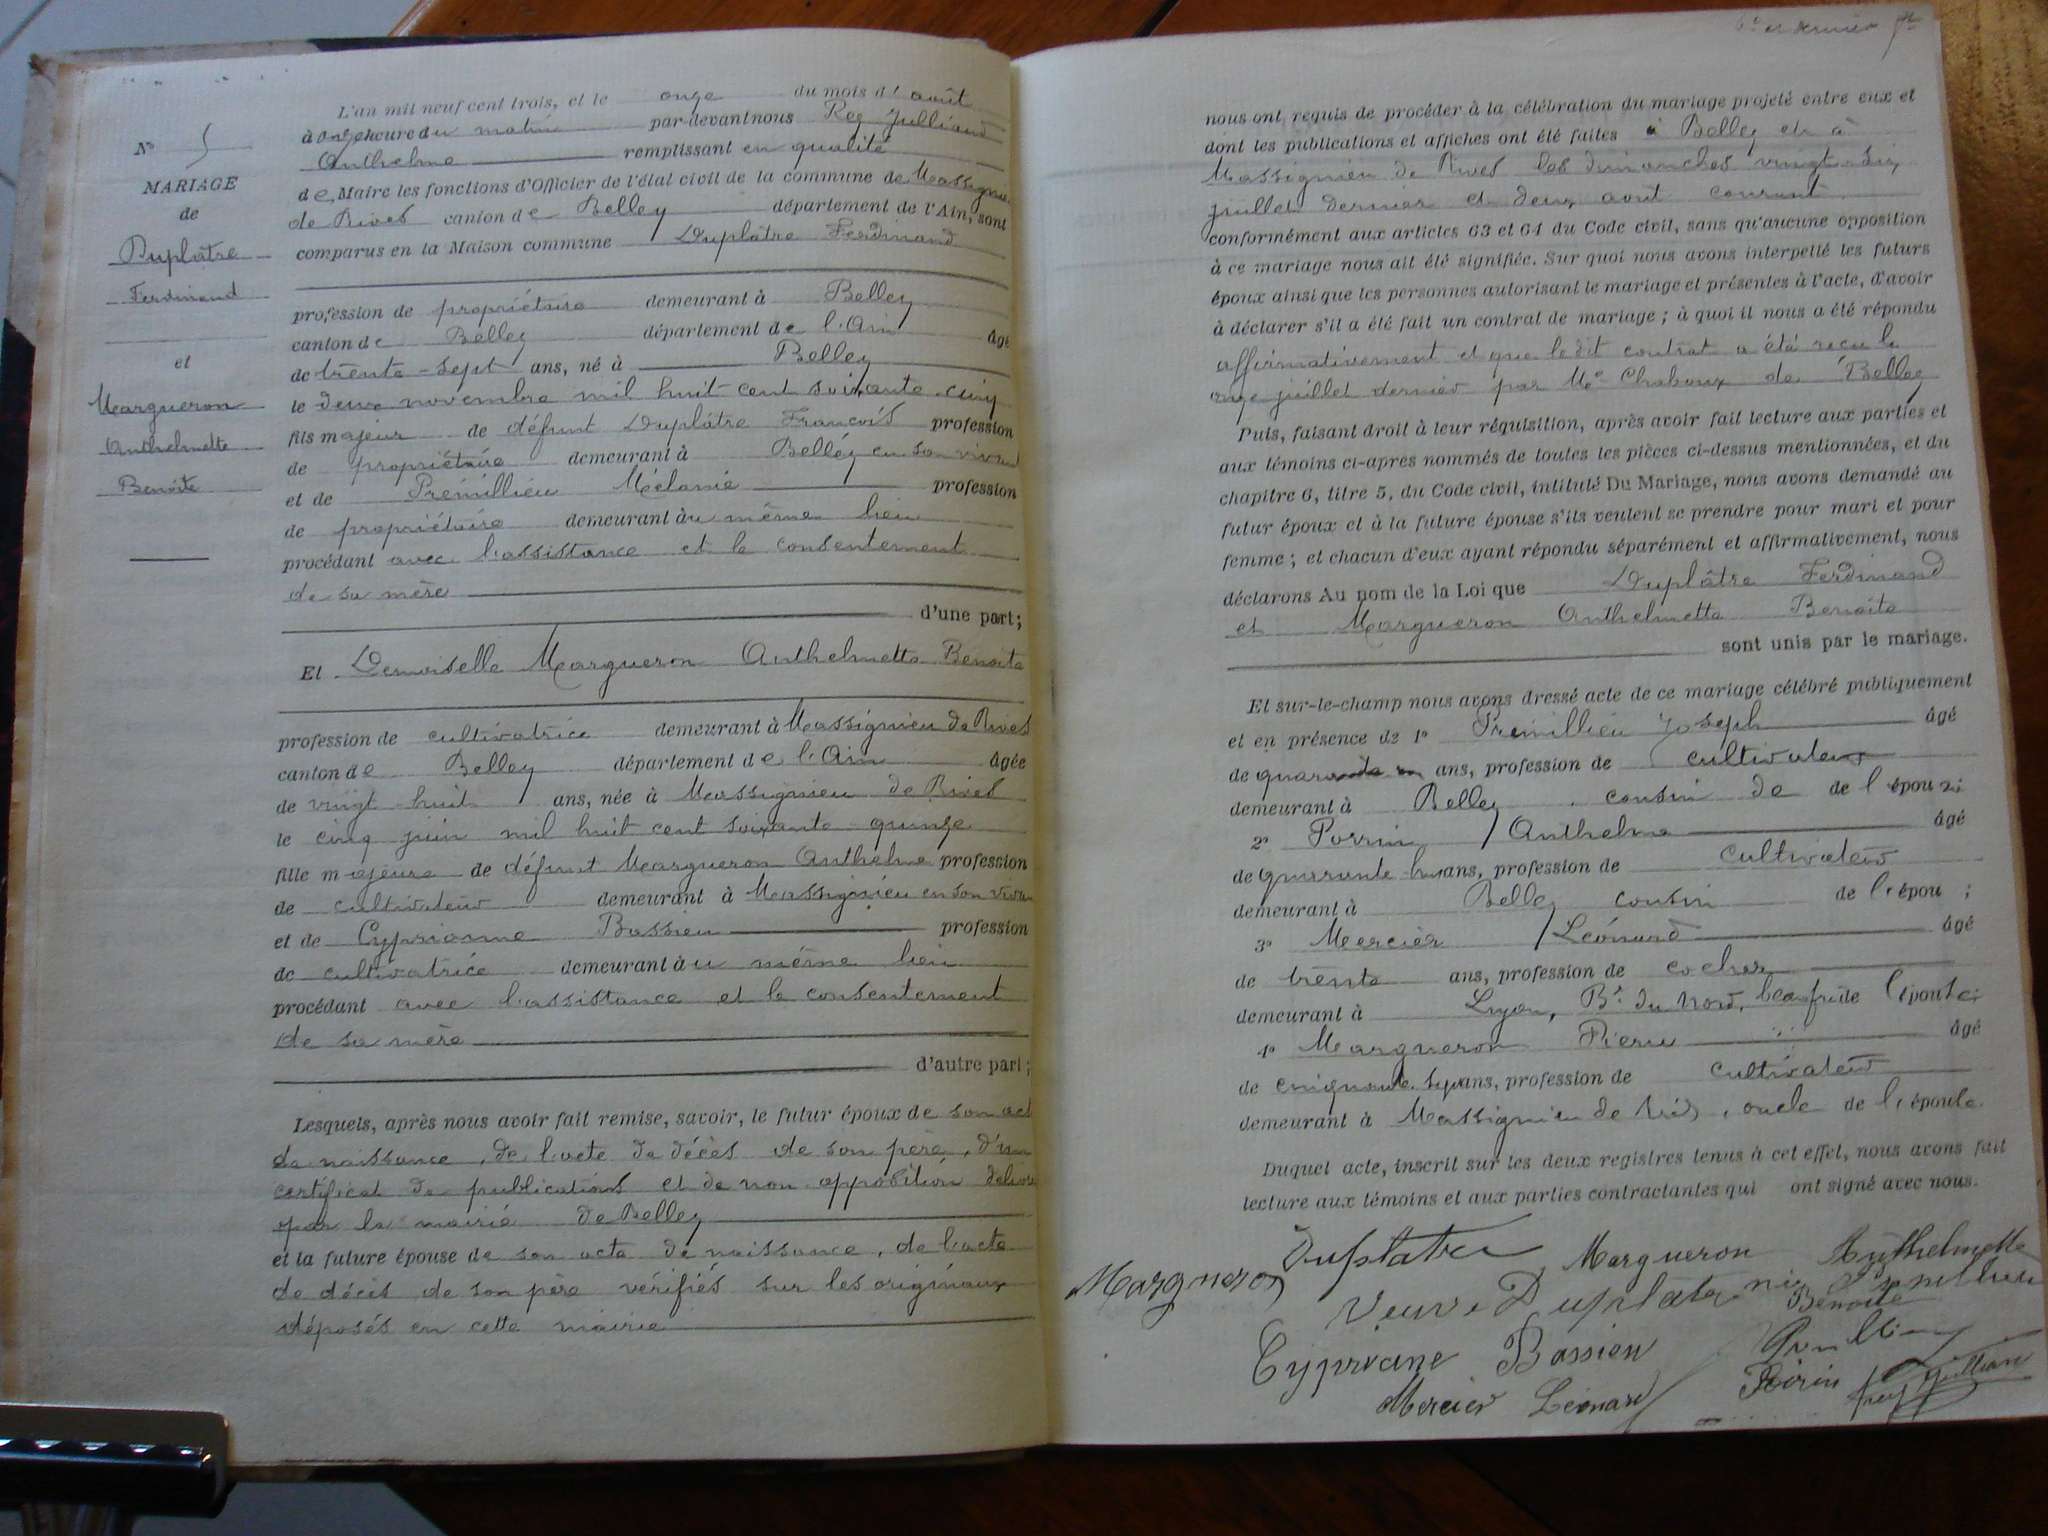 N° 5
MARIAGE
de
Duplâtre
Ferdinand
et
Margueron
Anthelmette
Benoite
L'an mil neuf cent trois, et le onze du mois d' août
à onze heure du matin par-devant nous Rey Julliand
Anthelme remplissant en qualité
de Maire les fonctions d'Officier de l'état civil de la commune de Massignieu
de Rives canton de Belley département de l'Ain, sont
comparus en la Maison commune Duplâtre Ferdinand
profession de propriétaire demeurant à Belley
canton de Belley département de l'Ain âgé
de trente-sept ans, né à Belley
le deux novembre mil huit cent soixante-cinq
fils majeur de défunt Duplâtre François profession
de propriétaire demeurant à Belley en son vivant
et de Prémillieu Mélanie profession
de propriétaire demeurant au même lieu
procédant avec l'assistance et le consentement
de sa mère
d'une part;
Et Demoiselle Margueron Anthelmette Benoite
profession de cultivatrice demeurant à Massignieu de Rives
canton de Belley département de l'Ain âgée
de vingt-huit ans, née à Massignieu de Rives
le cinq juin mil huit cent soixante-quinze
fille majeure de défunt Margueron Anthelme profession
de cultivateur demeurant à Massignieu en son vivan
et de Cyprianne Bassieu profession
de cultivatrice demeurant au même lieu
procédant avec l'assistance et le consentement
de sa mère
d'autre part;
Lesquels, après nous avoir fait remise, savoir, le futur époux de son act
de naissance, de l'acte de décès de son père, d'un
certificat de publications et de non opposition délivré
par la mairie de Belley
et la future épouse de son acte de naissance, de l'acte
de décès de son père vérifiés sur les originaux
déposés en cette mairie
6e et dernier
nous ont requis de procéder à la célébration du mariage projeté entre eux et
dont les publications et affiches ont été faites à Belley et à
Massignieu de Rives les dimanches vingt-six
juillet dernier et deux août courant
conformément aux articles 63 et 64 du Code civil, sans qu'aucune opposition
à ce mariage nous ait été signifiée. Sur quoi nous avons interpellé les futurs
époux ainsi que les personnes autorisant le mariage et présentes à l'acte, d'avoir
à déclarer s'il a été fait un contrat de mariage; à quoi il nous a été répondu
affirmativement et que le dit contrat a été reçu le
onze juillet dernier par Me Chaboux de Belley
Puis, faisant droit à leur réquisition, après avoir fait lecture aux parties et
aux témoins ci-après nommés de toutes les pièces ci-dessus mentionnées, et du
chapitre 6, titre 5, du Code civil, intitulé Du Mariage, nous avons demandé au
futur époux et à la future épouse s'ils veulent se prendre pour mari et pour
femme; et chacun d'eux ayant répondu séparément et affirmativement, nous
déclarons Au nom de la Loi que Duplâtre Ferdinand
et Margueron Anthelmette Benoite
sont unis par le mariage.
Et sur-le-champ nous avons dressé acte de ce mariage célébré publiquement
et en présence de 1° Prémillieu Joseph âgé
de quarante ans, profession de cultivateur
demeurant à Belley cousin de de l'époux;
2° Perrin Anthelme âgé
de quarante huit ans, profession de cultivateur
demeurant à Belley cousin de l'épou ;
3° Mercier Léonard âgé
de trente ans, profession de cocher
demeurant à Lyon, Bd du Nord, beau frère de l'épouse;
4° Margueron Pierre âgé
de cinquante sept ans, profession de cultivateur
demeurant à Massignieu de Rives, oncle de l'épouse.
Duquel acte, inscrit sur les deux registres tenus à cet effet, nous avons fait
lecture aux témoins et aux parties contractantes qui ont signé avec nous.
Duplatre Margueron Anthelmette
Margueron Benoite
Veuve Duplatre née Prémillieu
Cypriane Bassieu
Perrin
Mercier Léonard